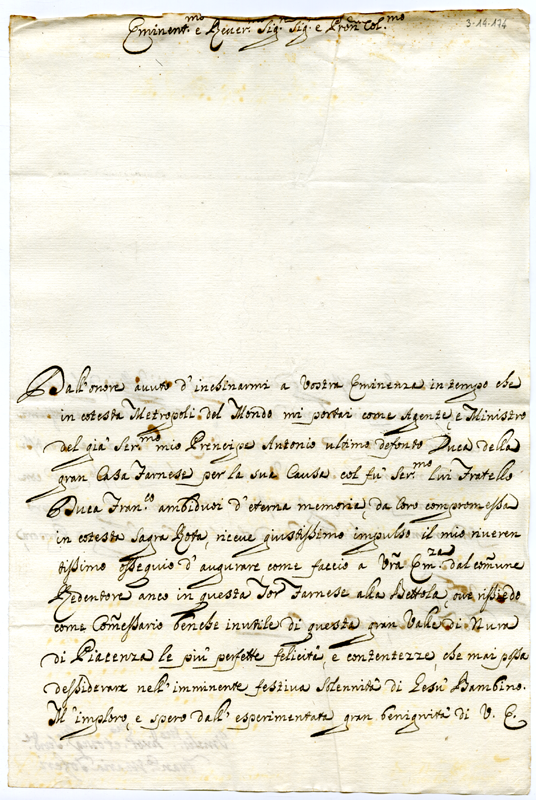 3-14-174
Eminent.mo e Rever.mo Sig.r Sig.r e Pron Col.mo
Dall'onore avuto d'inchinarmi a Vostra Eminenza in tempo che
in cotesta Metropoli del Mondo mi portai come Agente, e Ministro
del già Ser.mo mio Prencipe Antonio ultimo defonto Duca della
gran Casa Farnese per la sua Causa col fù Ser.mo lui Fratello
Duca Fran.co ambiduoi d'eterna memoria, da loro compromessa
in cotesta sagra Rota, riceve giustissimo impulso il mio riveren
tissimo ossequio d'augurare come faccio a Vra Em.za dal comune
Redentore anco in questa Tor Farnese alla Bettola, ove rissiedo
come Comessario benche inutile di questa gran Valle di Nura
di Piacenza le più perfette felicità, e contentezze, che mai possa
dessiderare nell'imminente festiva Solennità di Gesù Bambino.
M'imploro, e spero dall'esperimentata gran benignità di V. E.